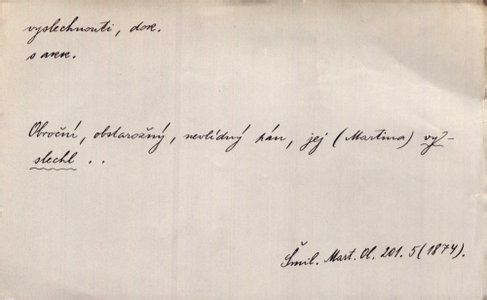 vyslechnouti, dok.
s akk.
Obroční, obstarožný, nevlídný pán, jej (Martina) vy-
slechl . .
Šmil. Mart. Ol. 201. 5 (1874).